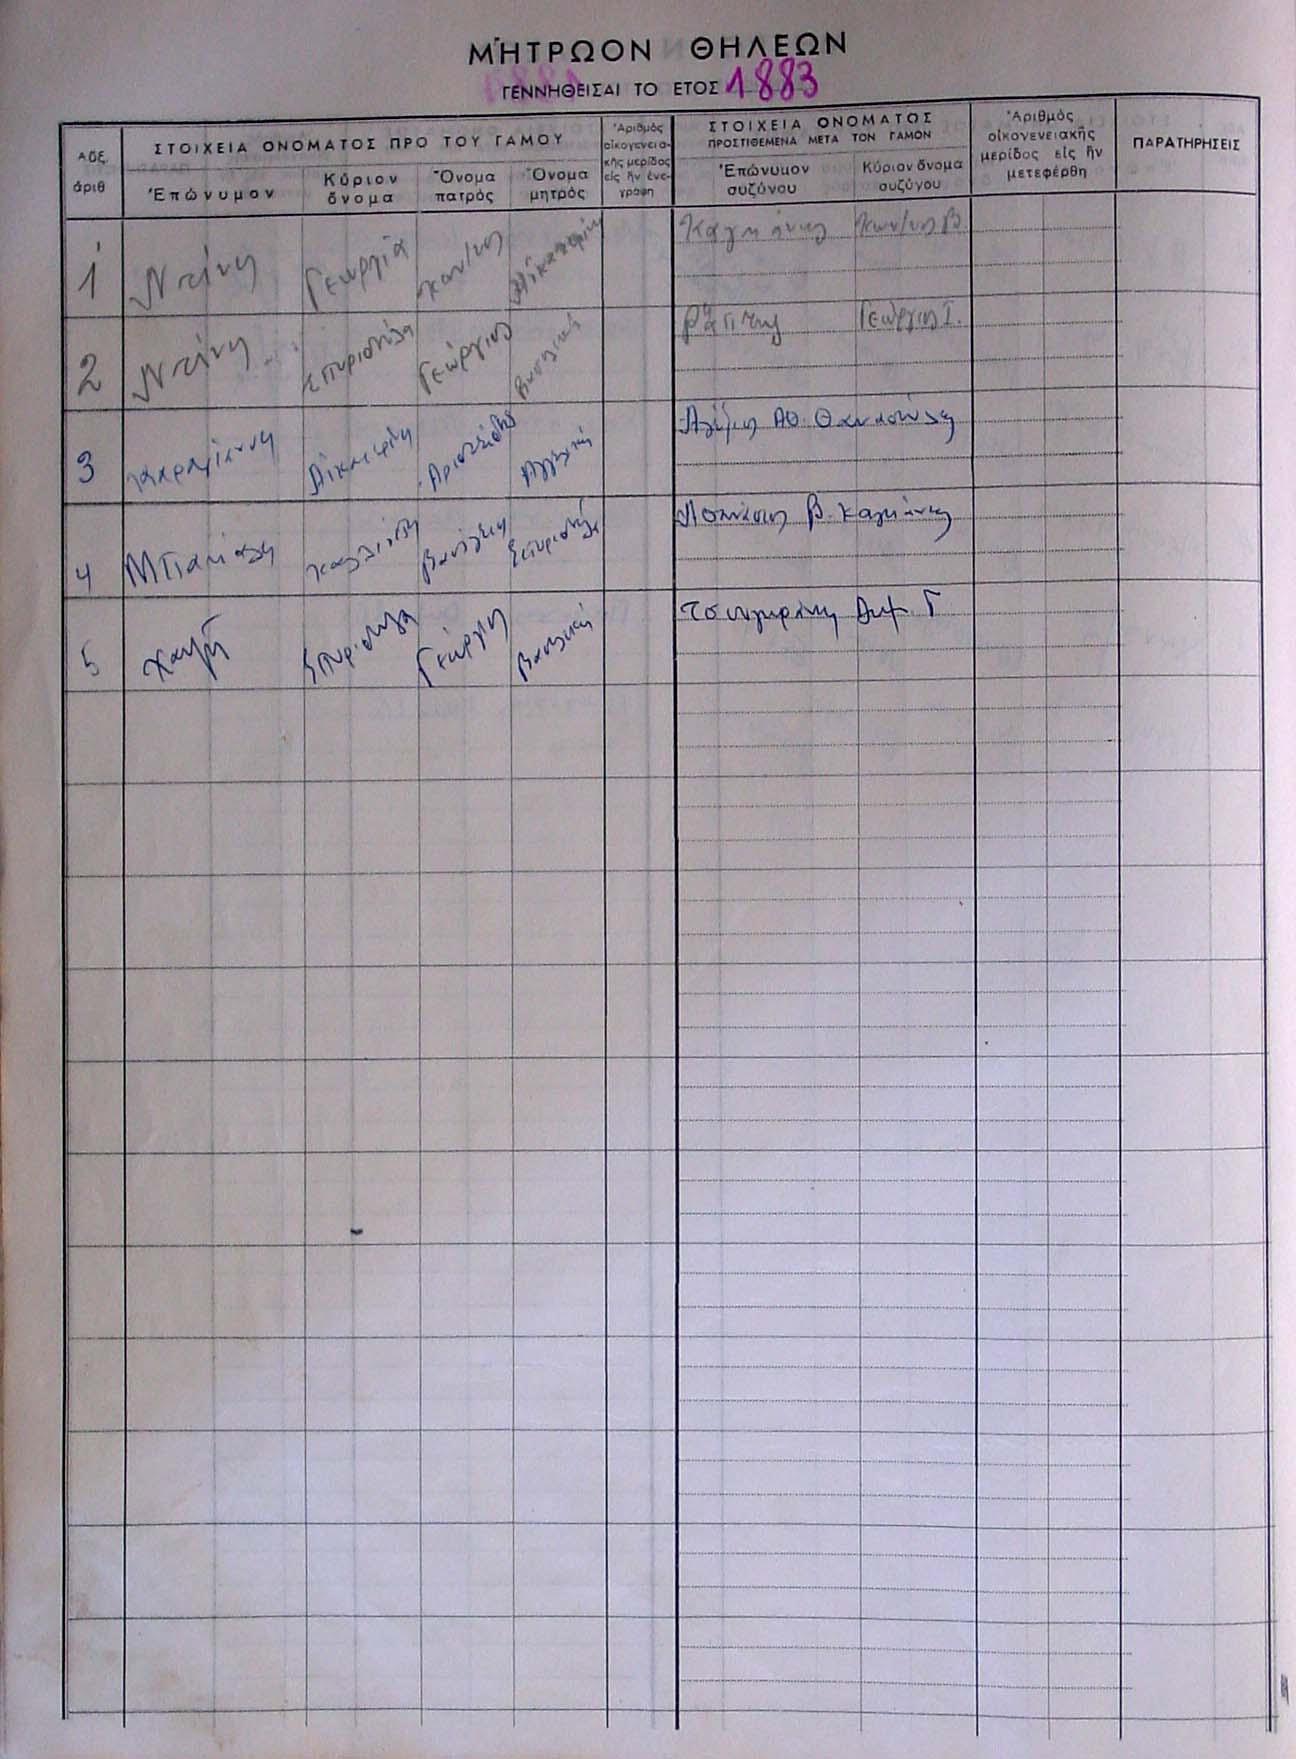 ΜΗΤΡΩΟΝ ΘΗΛΕΩΝ
ΓΕΝΝΗΘΕΙΣΑΙ ΤΟ ΕΤΟΣ 1883
Αὔξ. ἀριθ
ΣΤΟΙΧΕΙΑ ΟΝΟΜΑΤΟΣ ΠΡΟ ΤΟΥ ΓΑΜΟΥ
Ἐπώνυμον Κύριον ὄνομα Ὄνομα πατρὸς Ὄνομα μητρὸς
Ἀριθμὸς οἰκογενεια-κῆς μερίδος εἰς ἣν ἐνε-γράφη
ΣΤΟΙΧΕΙΑ ΟΝΟΜΑΤΟΣ
ΠΡΟΣΤΙΘΕΜΕΝΑ ΜΕΤΑ ΤΟΝ ΓΑΜΟΝ
Ἐπώνυμον συζύγου Κύριον ὄνομα συζύγου
Ἀριθμὸς οἰκογενειακῆς μερίδος εἰς ἣν μετεφέρθη
ΠΑΡΑΤΗΡΗΣΕΙΣ
1 Ντάνη Γεωργία Κων/νος Αἰκατερίνη Καλμάνης Κων/νος Β.
2 Ντάνη Σπυριδούλα Γεώργιος Βασιλική Γεώργιος Γ.
3 Αἰκατερίνη Ἀριστείδης Ἀγγελική Ἀλέξιος Αθ. Θανασούλης
4 Βασίλειος Σπυριδούλα Β. Καλμάνης
5 Σπυριδούλα Γεώργιος Βασιλική Δημ. Γ